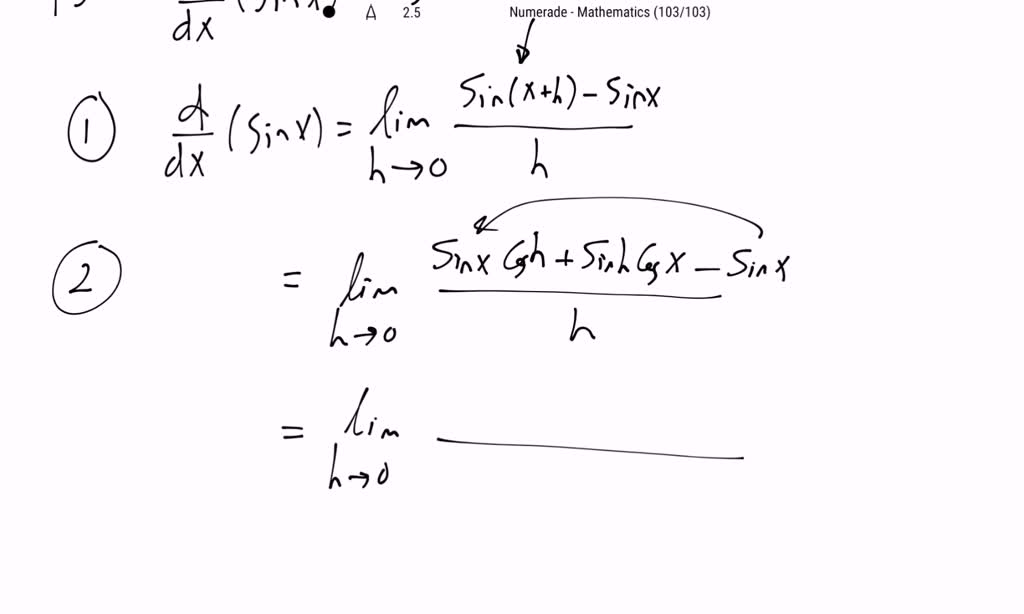 d/dx (sin x) A 2.5 Numerade - Mathematics (103/103)
① d/dx (sin x) = lim h→0 (Sin(x+h) - Sinx)/h
② = lim h→0 (Sinx Cosh + Sinh Cosx - Sinx)/h
= lim h→0